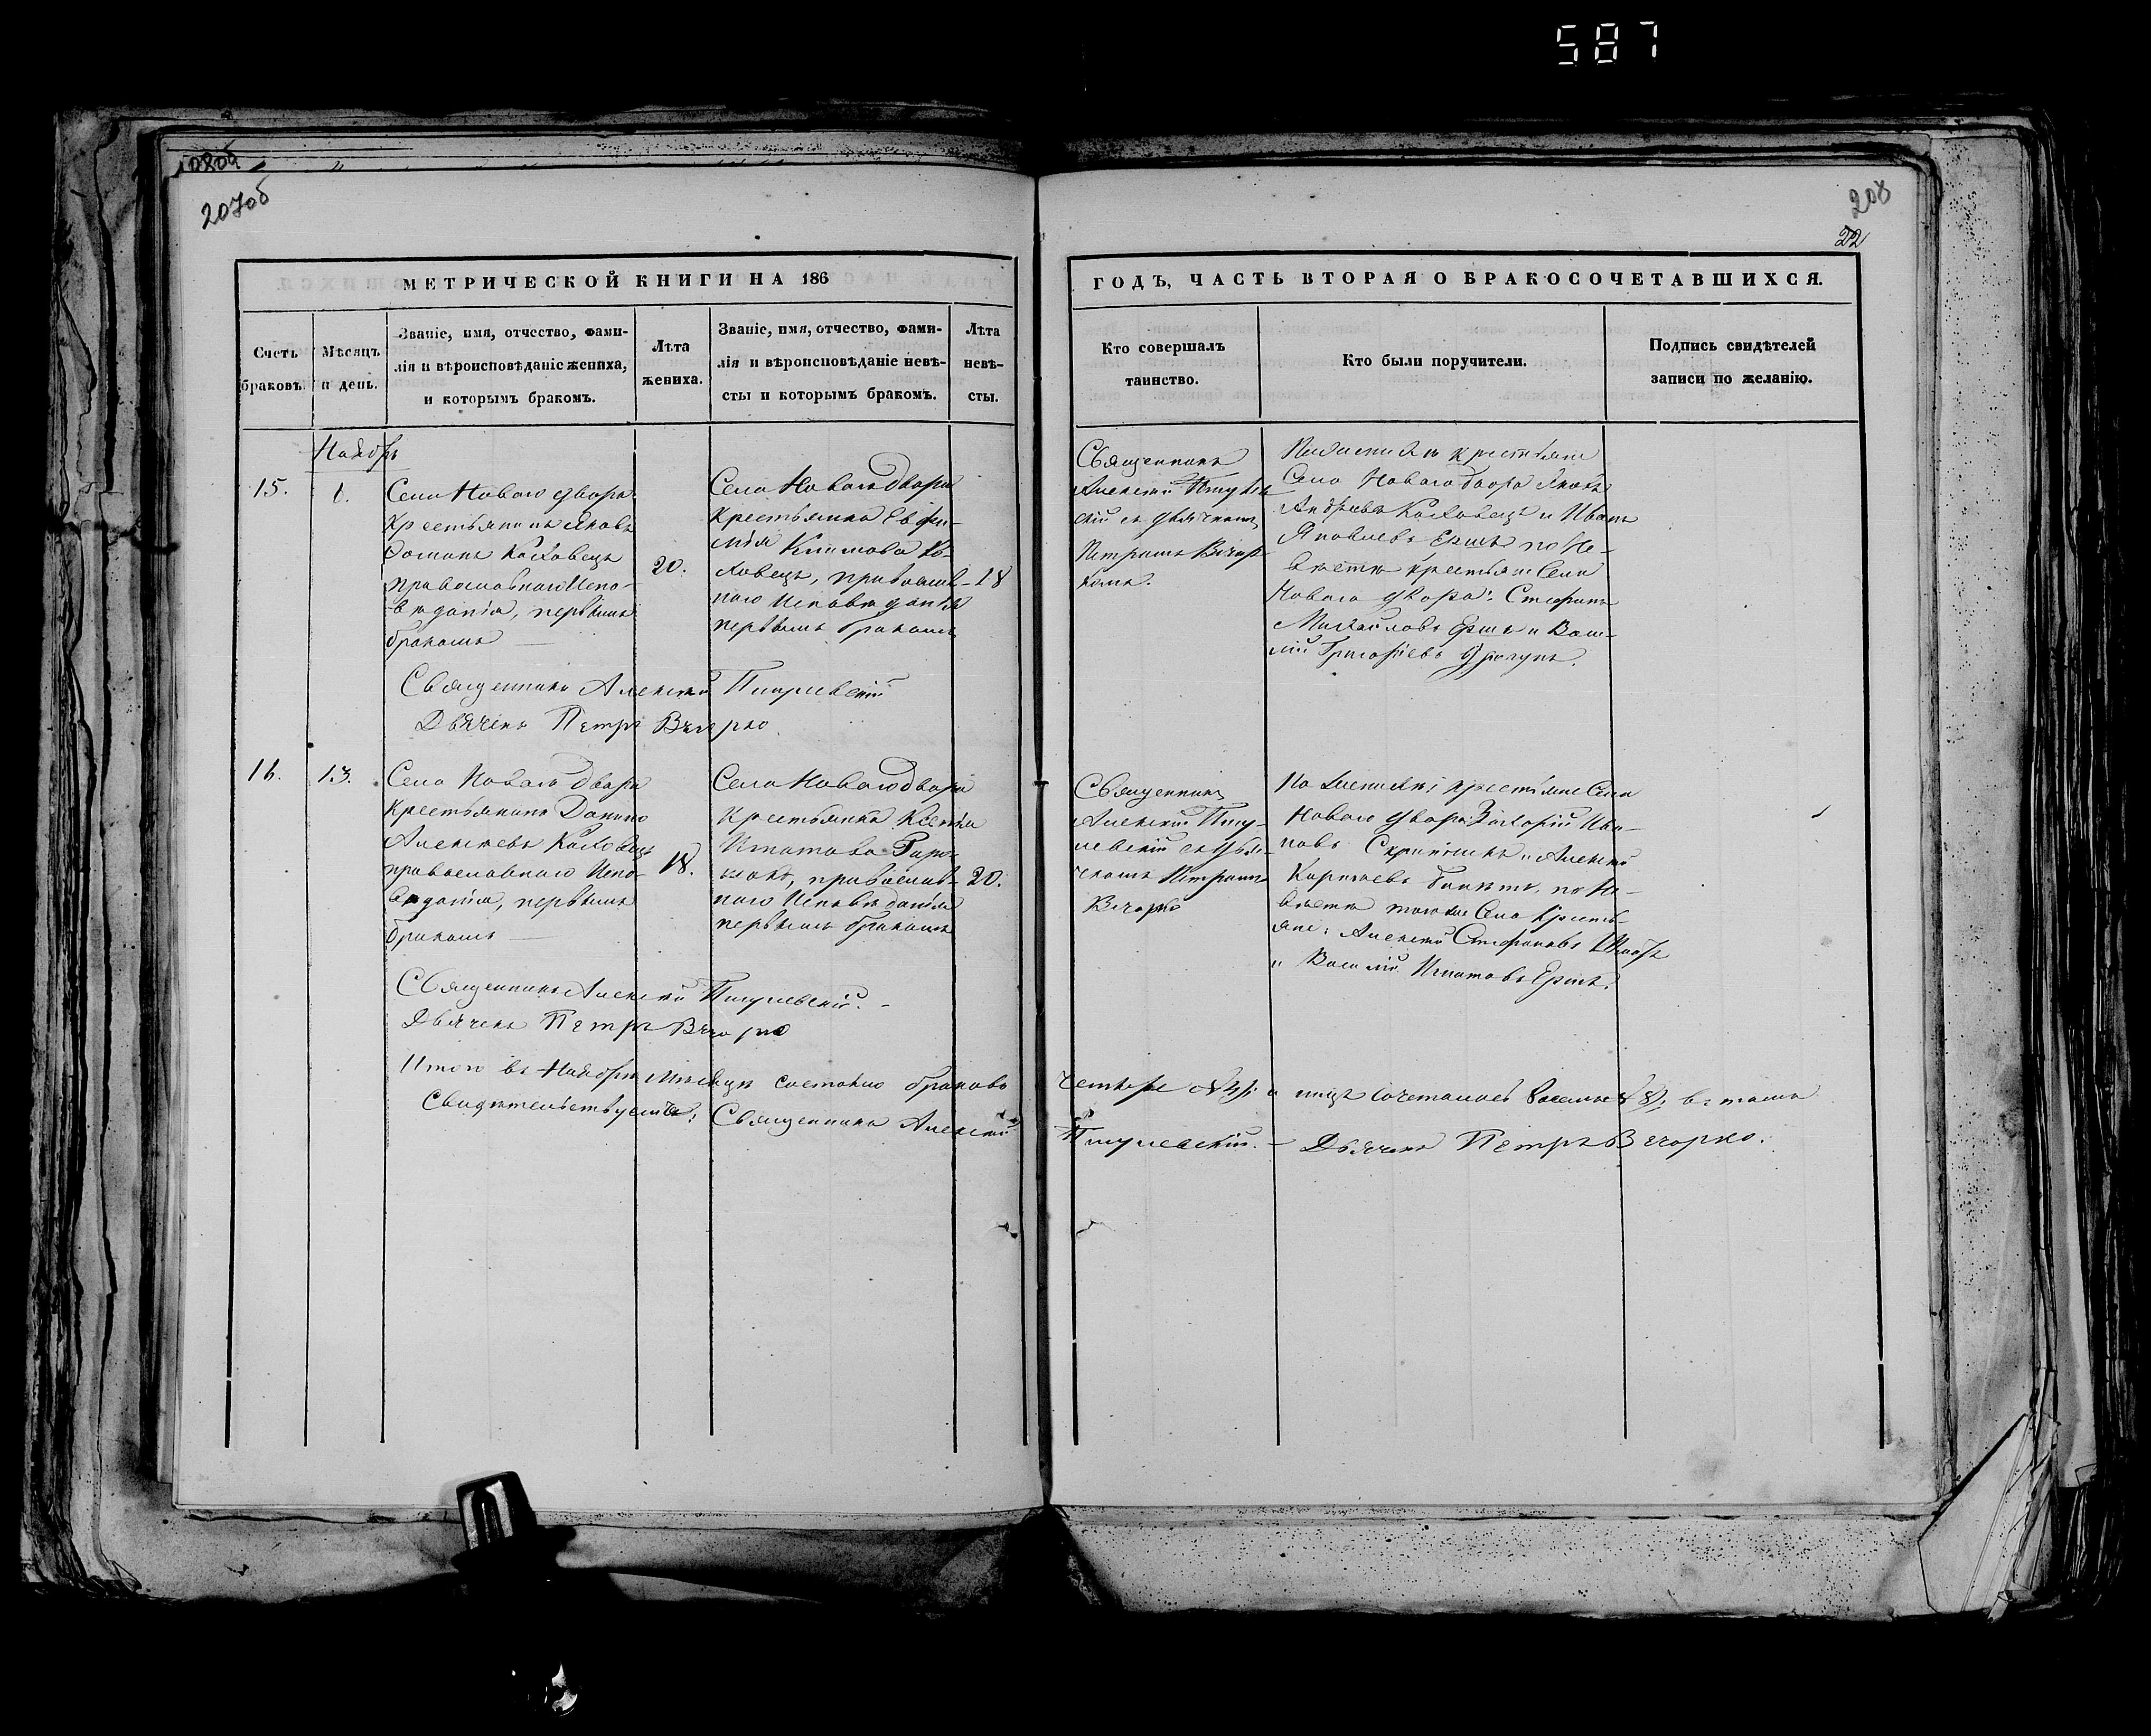 587
207об
208
22
МЕТРИЧЕСКОЙ КНИГИ НА 186
ГОДЪ, ЧАСТЬ ВТОРАЯ О БРАКОСОЧЕТАВШИХСЯ.
Счетъ браковъ.
Мѣсяцъ и день.
Званіе, имя, отчество, фами-
лія и вѣроисповѣданіе жениха,
и которымъ бракомъ.
Лѣта жениха.
Званіе, имя, отчество, фами-
лія и вѣроисповѣданіе невѣ-
сты и которымъ бракомъ.
Лѣта невѣ-
сты.
Кто совершалъ
таинство.
Кто были поручители.
Подпись свидѣтелей
записи по желанію.
Ноябрь
15.
1.
Села Новаго двора
Крестьянинъ Яковъ
Коховецъ
православнаго Испо-
вѣданія, первымъ
бракомъ
20.
Села Новаго двора
Крестьянка Евфи-
мія Климова Ко-
ховецъ, православ-
наго Исповѣданія
первымъ бракомъ
18
Священникъ
Алексей
скій съ дьячкомъ
Петромъ Вечор-
комъ.
По женихѣ крестьяне
Села Новаго двора Яковъ
Андреевъ Коховецъ и Иванъ
Яковлевъ Ершъ по Не-
вѣстѣ крестьяне Села
Новаго двора: Стефанъ
Михайловъ Ершъ и Васи-
лій Григорьевъ
Священникъ Алексей
Дьячекъ Петръ Вечорко.
16.
13.
Села Новаго двора
Крестьянинъ Данило
Алексеевъ Коховецъ
православнаго Испо-
вѣданія, первымъ
бракомъ
18.
Села Новаго двора
Крестьянка Ксенія
Игнатова
православ-
наго Исповѣданія
первымъ бракомъ
20.
Священникъ
Алексей
левскій съ дья-
чкомъ Петромъ
Вечорко
По женихѣ крестьяне Села
Новаго двора Захарій Ива-
новъ и Алексей
по Не-
вѣстѣ тогоже Села Кресть-
яне: Алексей Стефановъ
и Василій Игнатовъ Ершъ.
Священникъ Алексей
Дьячекъ Петръ Вечорко
Итого въ Ноябрѣ мѣсяцѣ состояло браковъ
четыре №4, а лицъ сочеталось восемь №8; въ томъ
Свидѣтельствуемъ: Священникъ Алексей
Дьячекъ Петръ Вечорко.